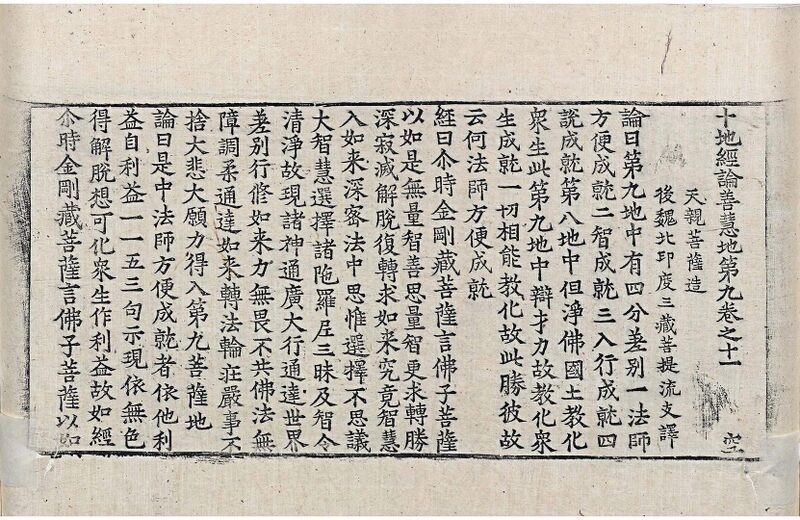 十地經論善慧地第九卷之十一 空
天親菩薩造
後魏北印度三藏菩提流支譯
論曰第九地中有四分差別一法師
方便成就二智成就三入行成就四
說成就第八地中但淨佛國土教化
衆生此第九地中辯才力故教化衆
生成就一切相能教化故此勝彼故
云何法師方便成就
經曰尒時金剛藏菩薩言佛子菩薩
以如是無量智善思量智更求轉勝
深寂滅解脫復轉求如来究竟智慧
入如来深密法中思惟選擇不思議
大智慧選擇諸陁羅尼三昧及智令
清淨故現諸神通廣大行通達世界
差別行修如来力無畏不共佛法無
障調柔通達如来轉法輪莊嚴事不
捨大悲大願力得入第九菩薩地
論曰是中法師方便成就者依他利
益自利益一一五三句示現依無色
得解脫想可化衆生作利益故如經
尒時金剛藏菩薩言佛子菩薩以如